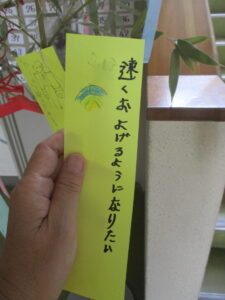 速くおよげるようになりたい